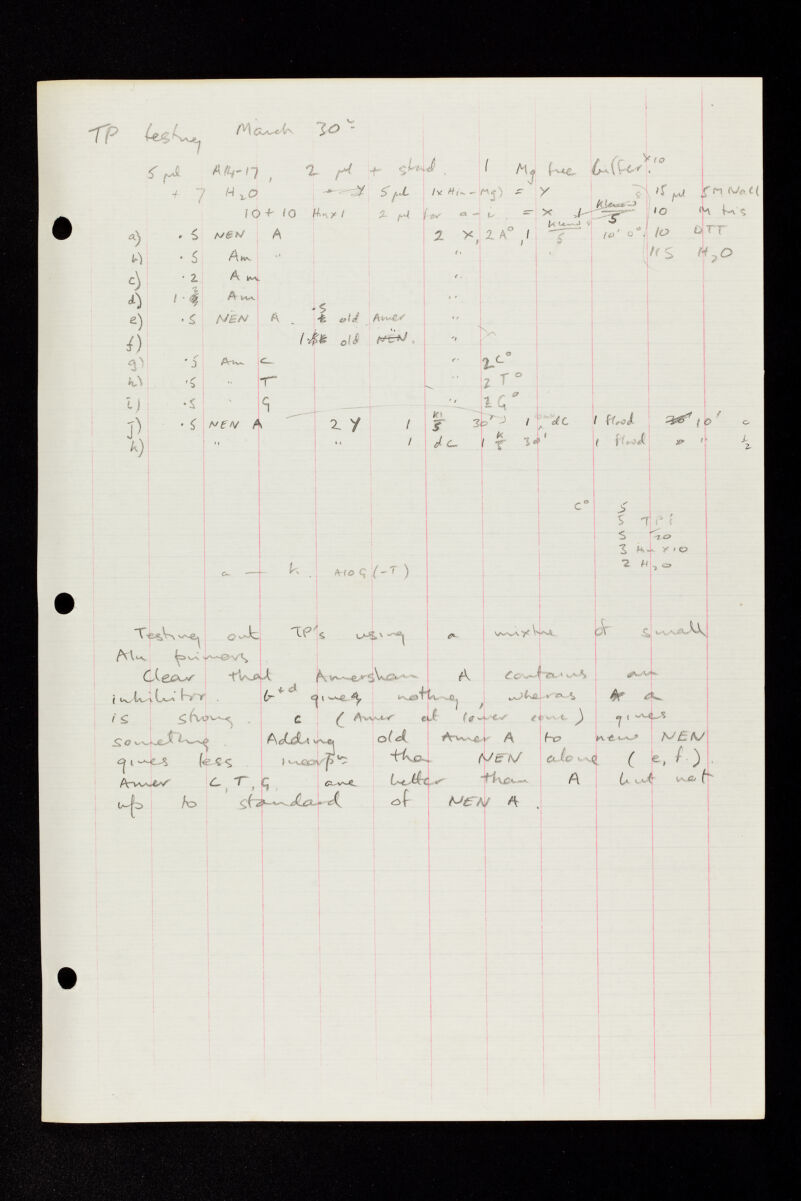 TP testing March 30th
5 µl A14-17, 2 µl + strand. 1 Mg free buffer x10
+ 7 H2O 5 µl (x Hin-Mg) = Y 15 µl 5M NaCl
10 + 10 Hin x 1 2 µl for a - i. = X 1 Klenow/5 10 M tris
a) .5 NEN A 2 X, 2 A°, 1 Klenow/5 10' 0°. 10 DTT
b) .5 Am " " 115 H2O
c) .2 Am "
d) 1. Am "
e) .5 NEN A .5 old Amer "
f) old NEN. "
g) .5 Am C " 2 C°
h) .5 " T " 2 T°
i) .5 " G " 2 G°
j) .5 NEN A 2 Y 1 Kl/5 30' 1 dC 1 flood 10' c
k) " " 1 dC 1 K/5 30' 1 flood " t2
C° 5
5 TP
5 T20
3 Hin x 10
2 H2O
a — k. A10G (-T)
Testing out TP's using a mixture of small
Alu primers
Clear that Amersham A contains an
inhibitor. b+d gives nothing, wheras a
is strong. c (Amer at lower conc) gives
something. Adding old Amer A to new NEN
gives less incorpn than NEN alone (e, f.).
Amer C, T, G, are better than A but not
up to standard of NEN A.